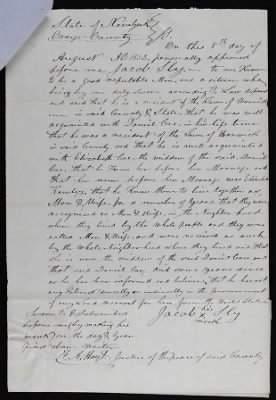 State of New York
Orange County } SS.
On this 5th day of
August A.D. 1852, personally appeared
before me Jacob Sly to me known
to be a good reputable man, and a citizen who
being by me duly sworn according to Law deposes
and said that he is a resident of the Town of
in said County & State, that he was well
acquainted with Daniel Coe, in his life time
that he was a resident of the Town of Warwick
in said County and that he is well acquainted
with Elizabeth Coe the widow of the said Daniel
Coe, that he knew her before her Marriage and
that her name before her Marriage was Elizabeth
that he knew them to live together as
Man & Wife for a number of years that they were
recognised as Man & Wife, in the Neighborhood
where they lived by the Whole people and they were
called Man & Wife and were received as such
by the Whole Neighborhood where they lived and that
she is now the widow of the said Daniel Coe and
that said Daniel Coe died some years since
as he has been informed and believes, that he has not
any Interest directly or indirectly in the procurement
of any Land Warrant for her from the United States
Sworn to & Subscribed
before me by making his
mark on the day & year
first above written
Jacob his x mark Sly
Justice of the peace of said County